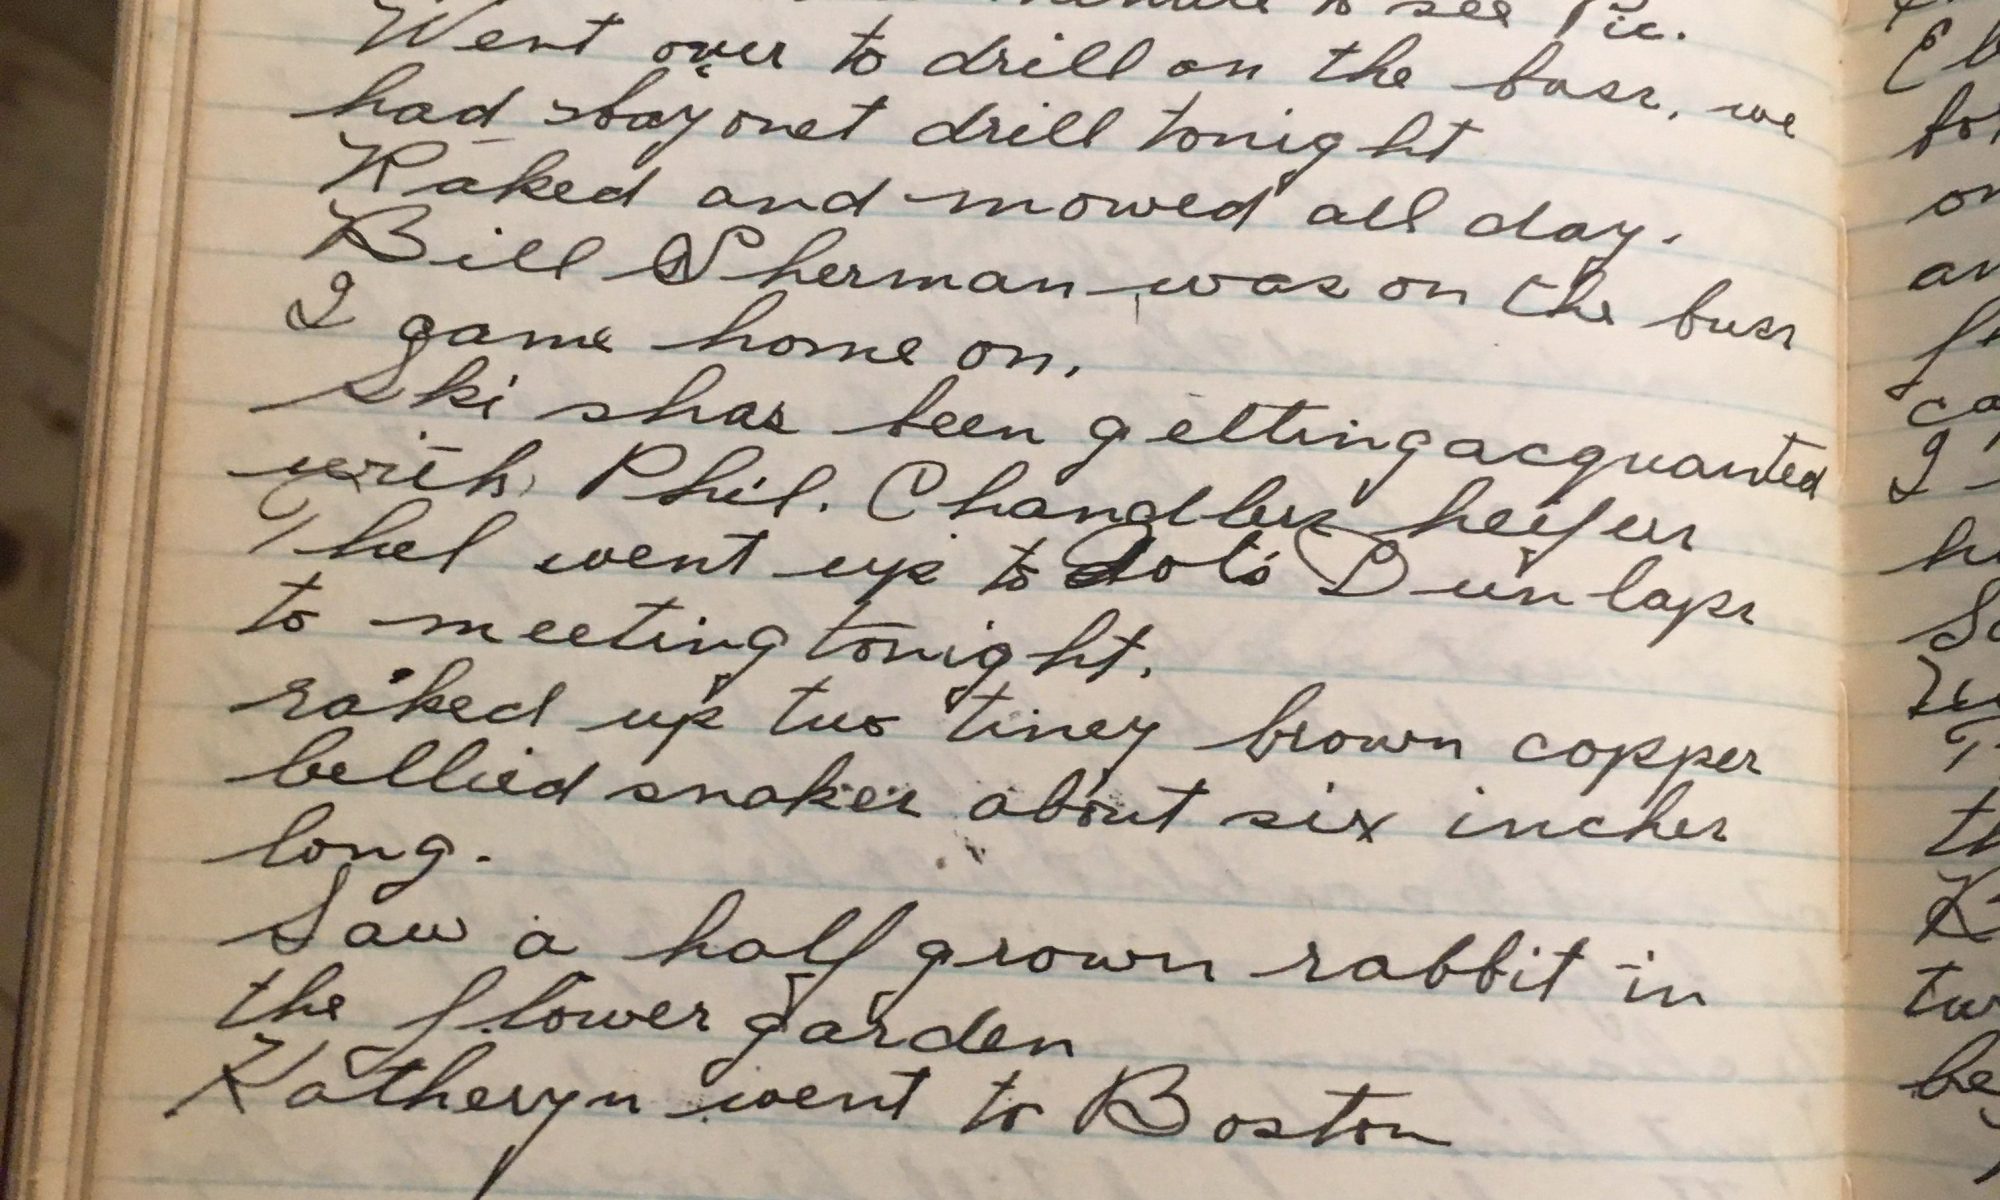 to see Pic.
Went over to drill on the buss, we
had bayonet drill tonight
Raked and mowed all day.
Bill Sherman was on the buss
I game home on.
Ski shas been getting acquanted
with Phil. Chandlers heifers
Thel went up to Dot's Dunlaps
to meeting tonight.
raked up two tiney brown copper
bellied snakes about six inches
long.
Saw a half grown rabbit in
the flower garden
Katheryn went to Boston